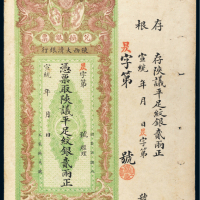 存根
存陝議平足紋銀貳兩正
宣統 年 月 日 字第 號
字第 號
陝西大清銀行
字第 號
憑票取陝議平足紋銀貳兩正
宣統 年 月 日